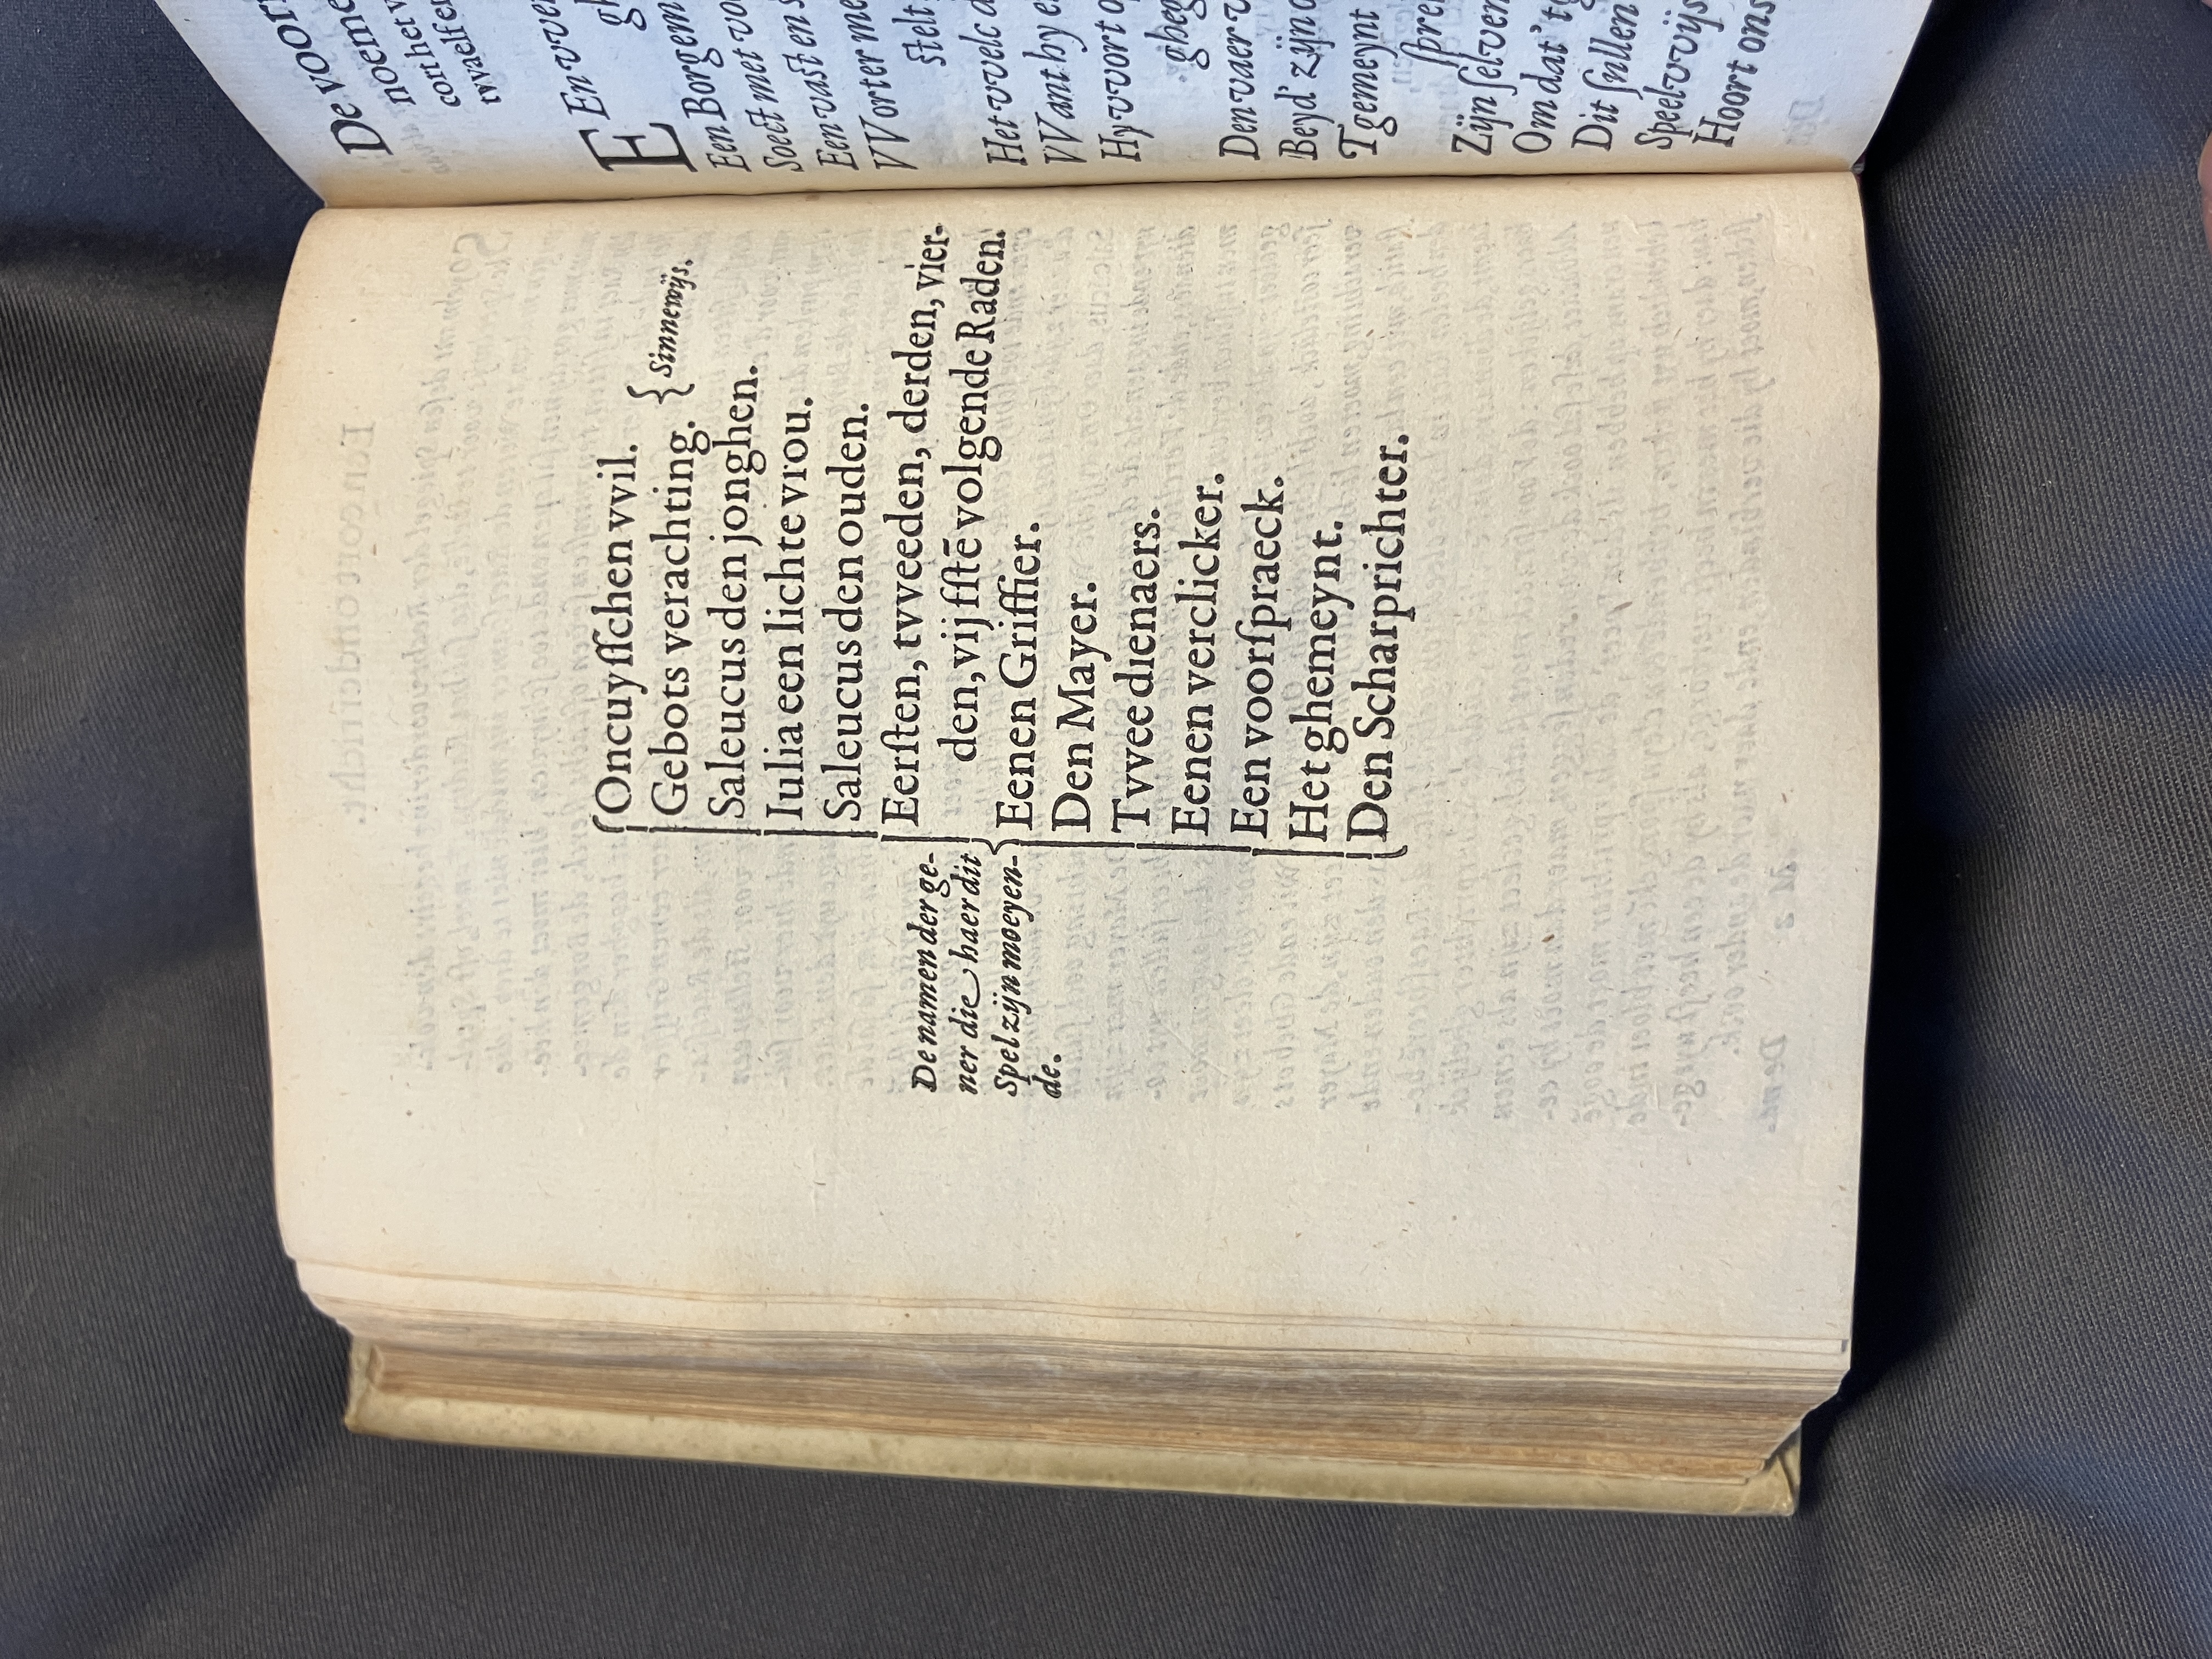 De namen der ge-
ner die haer dit
Spel zijn moeyen-
de.
Oncuyſſchen vvil.
Gebots verachting. { Sinnewijs.
Saleucus den jonghen.
Iulia een lichte vrou.
Saleucus den ouden.
Eerſten, tvveeden, derden, vier-
den, vijfſtē volgende Raden.
Eenen Griffier.
Den Mayer.
Tvvee dienaers.
Eenen verclicker.
Een voorſpraeck.
Het ghemeynt.
Den Scharprichter.
De voor
noeme
cort het v
tvvaelfe
EEn vve
gh
Een Borgem
Soect met vo
Een vast en s
VVorter me
stelt
Het vvelc d
VVant by e
Hy vvort o
gheg
Den vaer v
Beyd' zijn o
Tgemeynt
ſpre
Zijn ſelven
Om dat 't g
Dit ſullen
Speelvvijs
Hoort ons